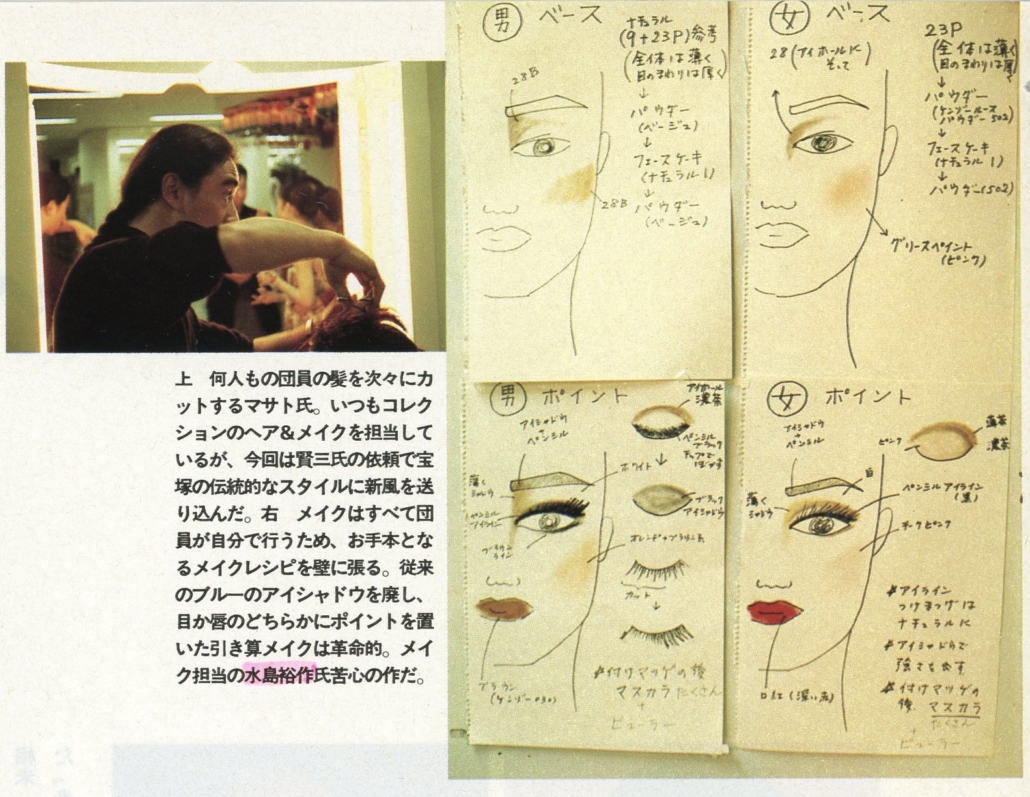 上　何人もの団員の髪を次々にカ
ットするマサト氏。いつもコレク
ションのヘア＆メイクを担当して
いるが、今回は賢三氏の依頼で宝
塚の伝統的なスタイルに新風を送
り込んだ。右　メイクはすべて団
員が自分で行うため、お手本とな
るメイクレシピを壁に張る。従来
のブルーのアイシャドウを廃し、
目か唇のどちらかにポイントを置
いた引き算メイクは革命的。メイ
ク担当の水島裕作氏苦心の作だ。
男 ベース
ナチュラル
(9+23P)参考
(全体は薄く
目のまわりは厚く)
↓
パウダー
(ベージュ)
↓
フェースケーキ
(ナチュラル1)
↓
パウダー
(ベージュ)
28B
28B
女 ベース
28(アイホールに
そって)
23P
(全体は薄く
目のまわりは厚く)
↓
パウダー
(ケンゾールース
パウダー502)
↓
フェースケーキ
(ナチュラル1)
↓
パウダー(502)
グリースペイント
(ピンク)
男 ポイント
アイホール
濃茶
アイシャドウ
+
ペンシル
ペンシル
ブラック
チップで
ぼかす
ホワイト
薄く
シャドウ
ペンシル
アイライン
ブラウン
ライン
ブラック
アイシャドウ
カット
↓
ブラウン
(ケンゾー030)
*付けマツゲの後
マスカラたくさん
+
ビューラー
女 ポイント
アイシャドウ
+
ペンシル
ピンク
薄茶
濃茶
白
薄く
シャドウ
ペンシルアイライン
(黒)
チークピンク
*アイライン
つけまつげは
ナチュラルに
*アイシャドウで
強さを出す
*付けマツゲの
後 マスカラ
たくさん
+
ビューラー
口紅(深い赤)